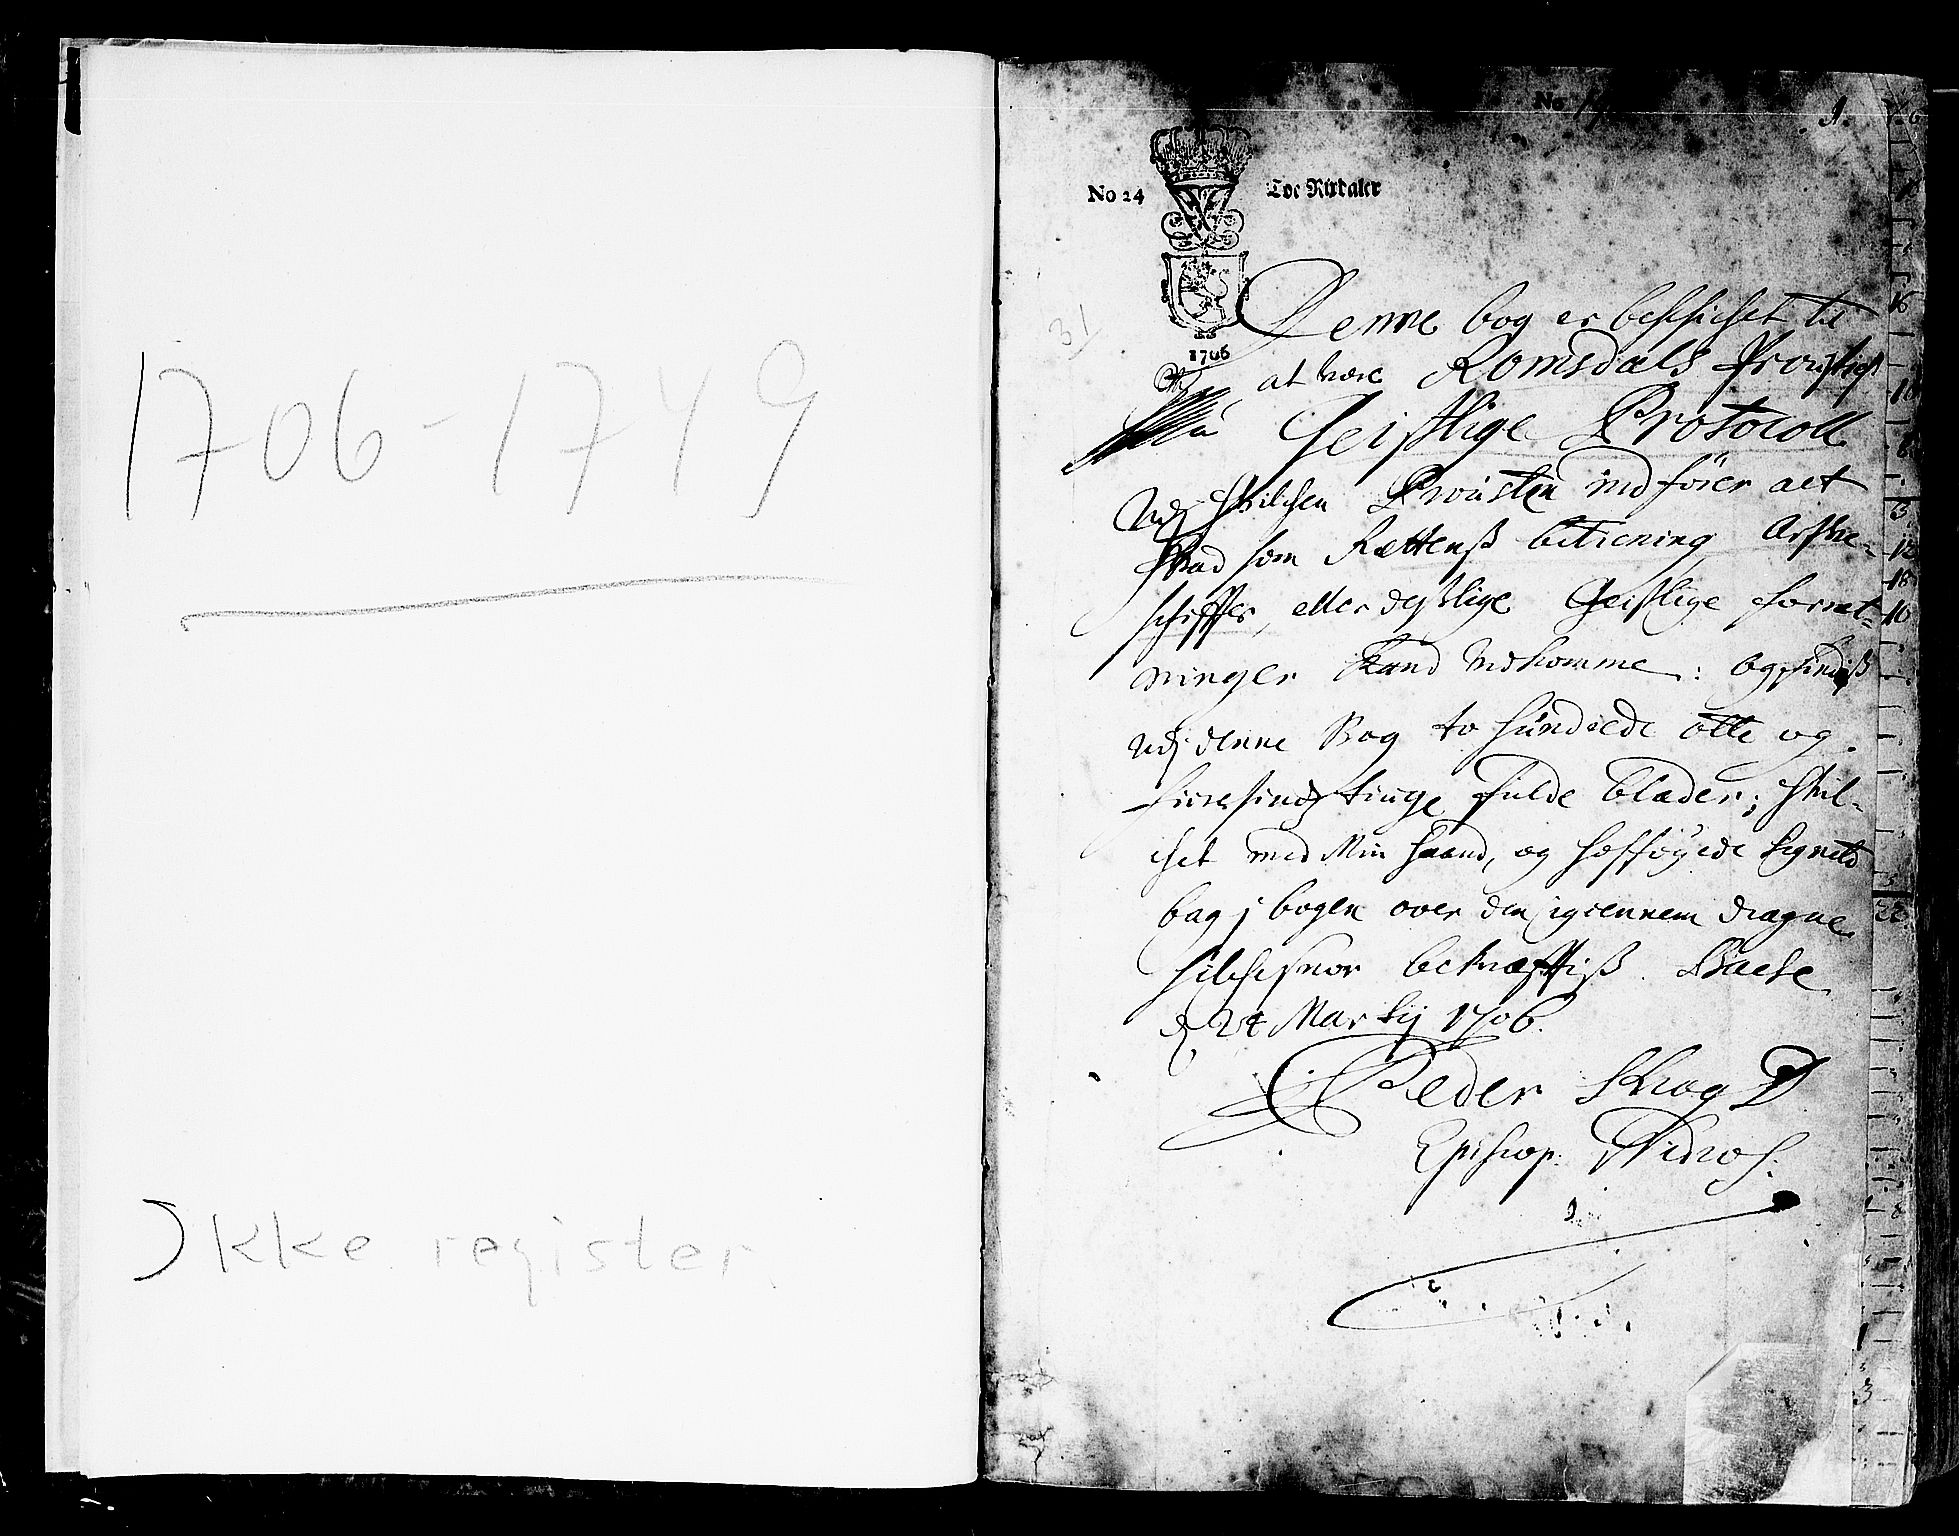 1706 - 1749
Ikke register
No
1.
No 24 Toe Rixdaler
1706
31
Denne bog er beschichet til
at være Romsdals Prousties
Geistlige Protocoll
Udj hvilchen Prousten indfører alt
hvad som Rettenß betiening, Arfve-
schiffter, eller dißlige Geistlige forret-
ninger kand vedkomme: og findiß
udj denne Bog to hundrede otte og
fiiresindz tiuge fulde blader; hvil-
chet med Min haand, og hosføyede Signete
bag j bogen over den igiennem dragne
silchesnor bekræfftiß. Backe
d. 24 Martij 1706.
Peder Krog D
Episcop. Nidros.